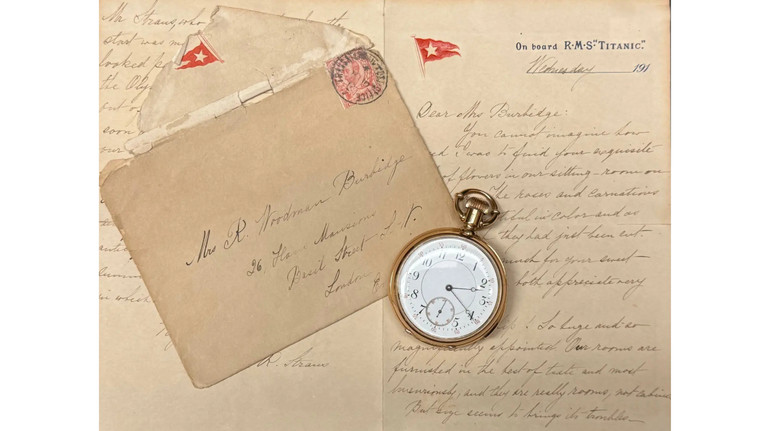 Mr Straus, who
start was m
looked p
the Oly
out o
soon
our
in which
R. Straus
Mrs R. Woodman Burbidge
26 Hans Mansions
Basil Street S.W.
London
On board R.M.S. "TITANIC."
Wednesday 191
Dear Mrs Burbidge:
You cannot imagine how
d I was to find your exquisite
of flowers in our sitting-room on
The roses and carnations
ful in color and as
they had just been cut.
much for your sweet
both appreciate very
! So huge and so
magnificently appointed. Our rooms are
furnished in the best of taste and most
luxuriously, and they are really rooms, not cabins
But size seems to bring its troubles
12
1
2
3
4
5
6
7
8
9
10
11